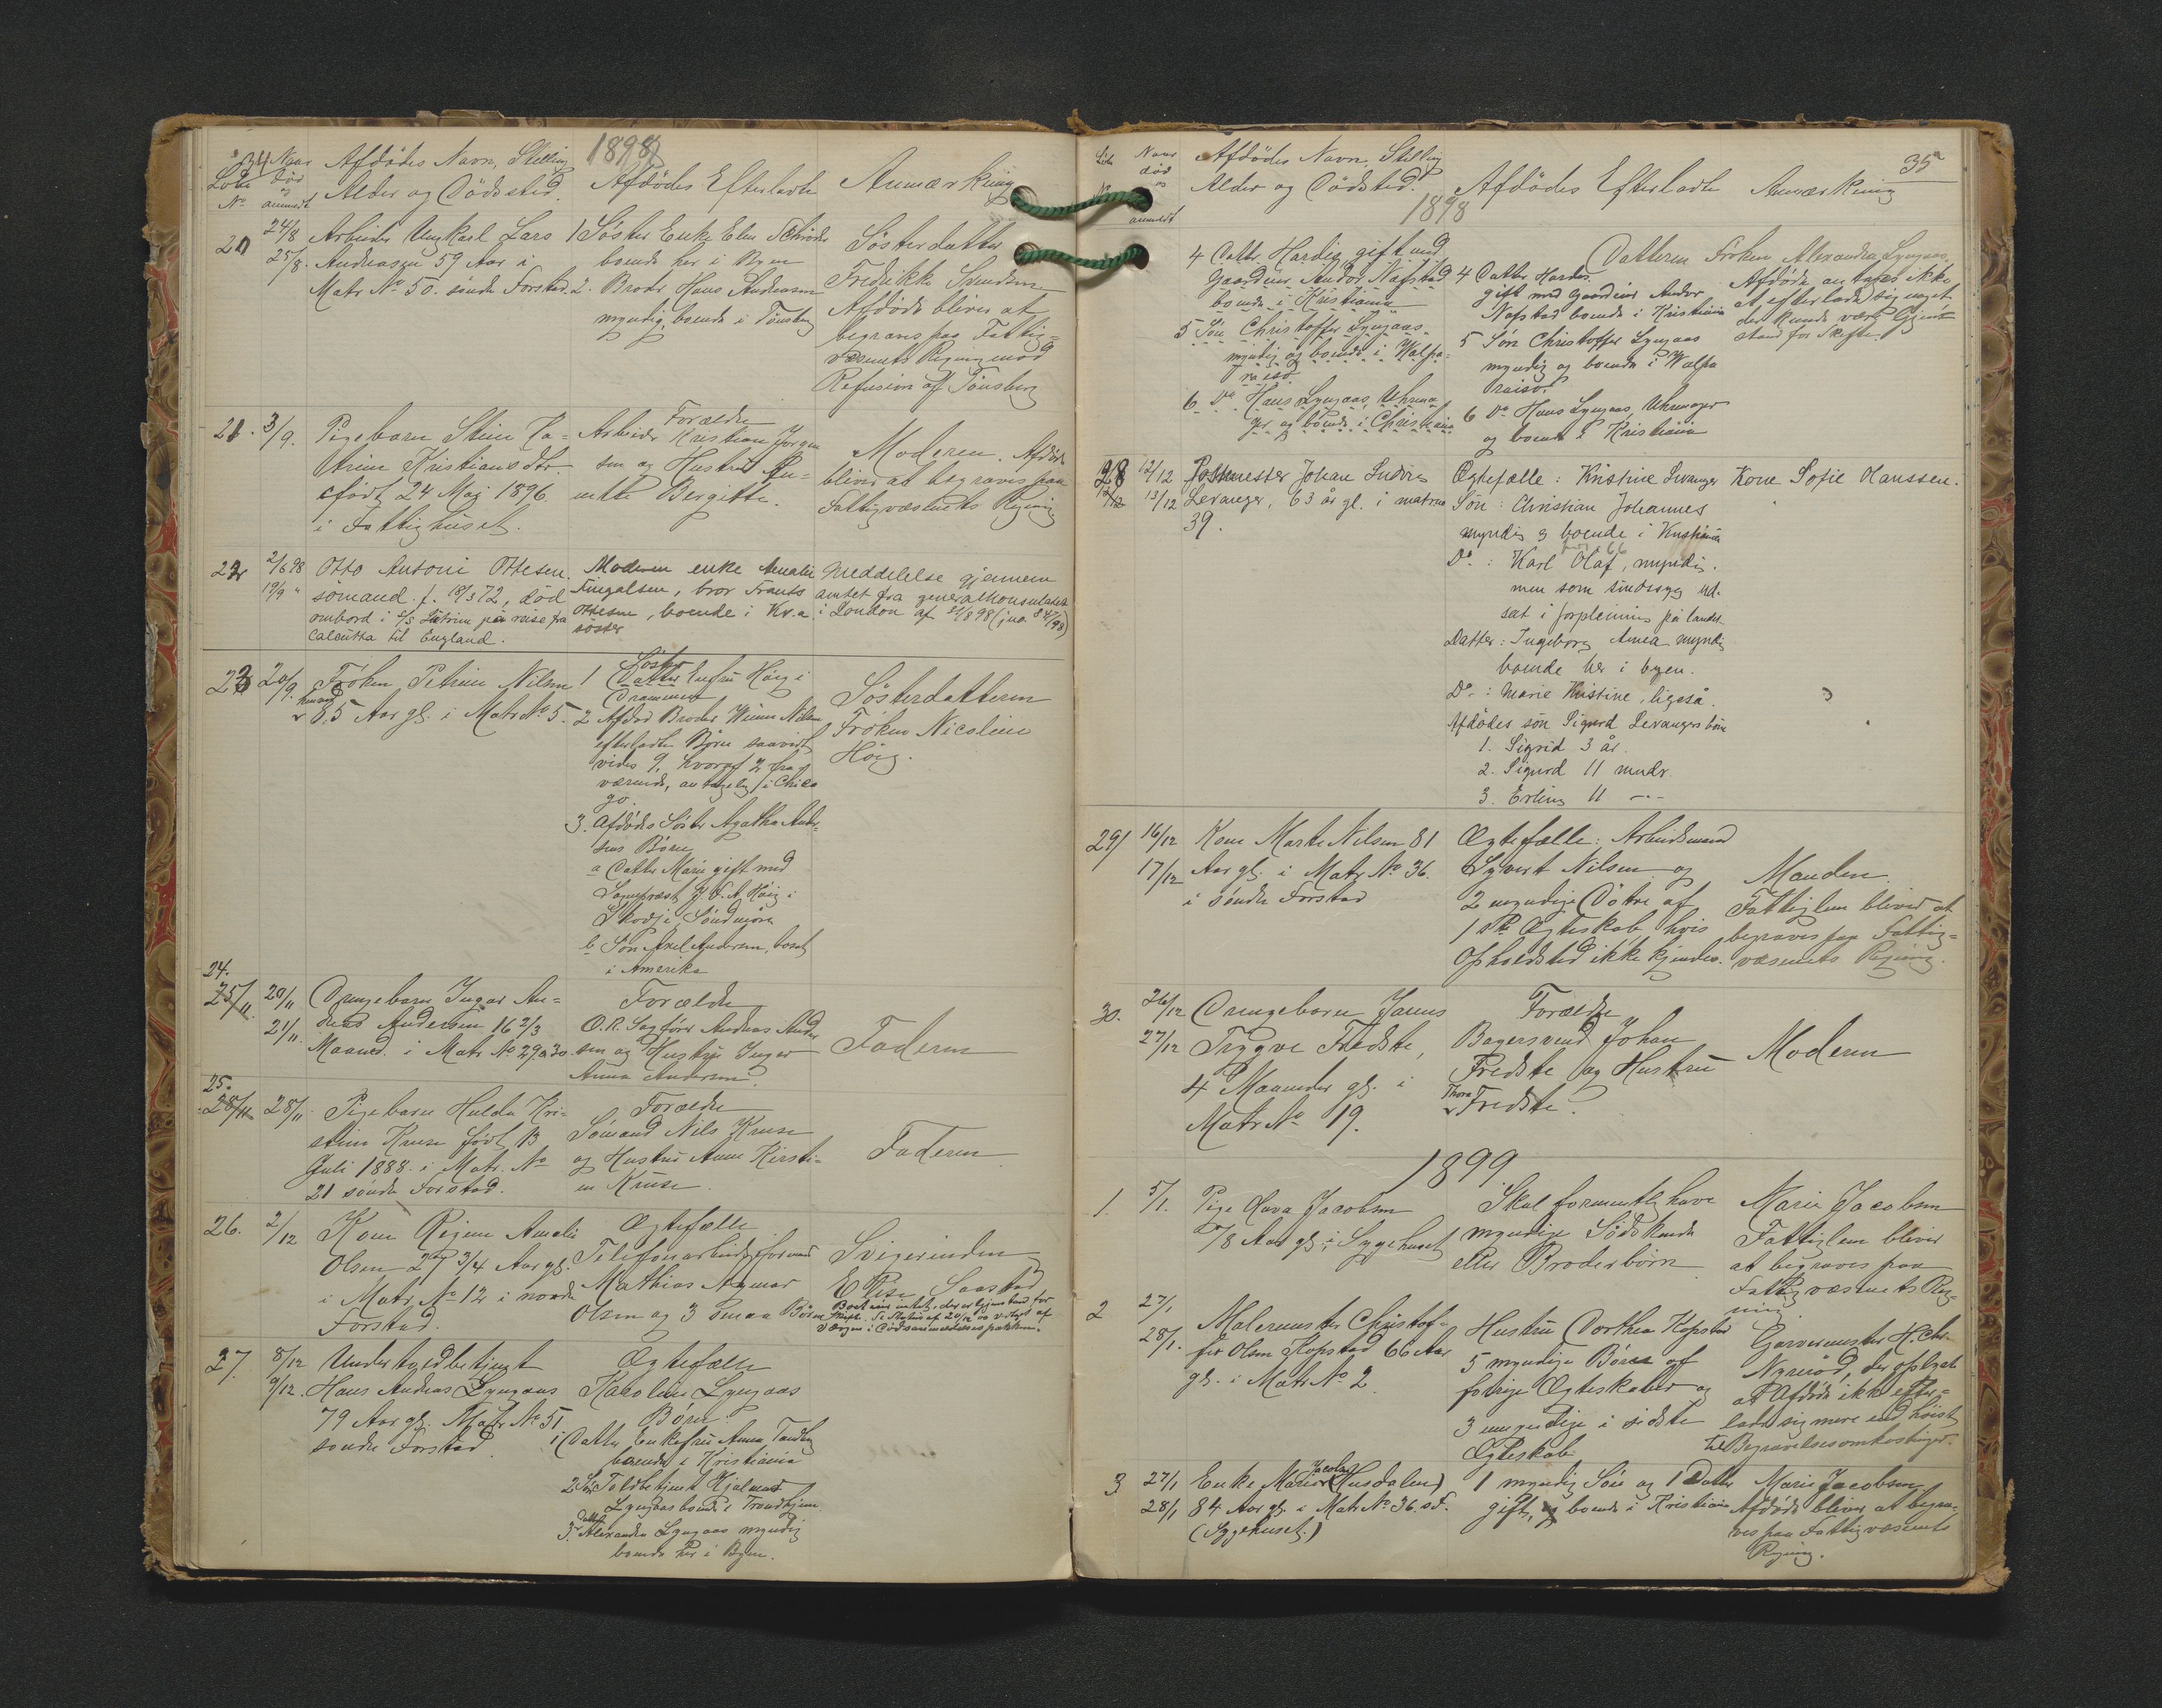 34
1898
Løbe No
Naar død og anmeldt
Afdødes Navn, Stilling
Alder og Dødssted.
Afdødes Efterladte
Anmærkning
20
24/8
25/8.
Arbeider Ungkarl Lars
Andreasen 59 Aar i
Matr No 50. søndre Forstad.
1 Søster Enke Elen Schrøder
boende her i Byen
2. Broder Hans Andreasen
myndig, boende i Tønsberg
Søsterdatter
Fredrikke
Afdøde bliver at
begraves paa Fattig-
væsenets Regning mod
Refusion af Tønsberg
21.
3/9.
Pigebarn Stine Ka-
trine Kristiansdtr
født 24 Maj 1896
i Fattighuset.
Forældre
Arbeider Kristian Jørgen
sen og Hustru
Bergitte.
Moderen. Afdøde
bliver at begraves paa
Fattigvæsenets Regning
22
2/6 98
19/9 "
Otto Antoni Ottesen.
sømand. f. 18/3 72, død
ombord i S/S på reise fra
Calcutta til England.
Moderen enke Amalie
Fingalsen, bror Frants
Ottesen, boende i Kr.a
søster
Meddelelse gjennem
amtet fra generalkonsulatet
i London af
23
20/9.
Frøken Petrine Nilsen
85 Aar gl. i Matr No 5.
Søster
1 Datter Enkefru Høeg i
Drammen
2 Afdød Broder Nilsen
efterladte Børn saavidt
vides 9, hvoraf 2 fra-
værende, antagelig i Chica
go.
3. Afdødes Søster Agatha Ander-
sens Børn
a Datter Marie gift med
Sogneprest Høeg i
Skodje, Søndmøre
b Søn Axel Andersen, bosat
i Amerika
Søsterdatteren
Frøken Nicoline
Høeg.
24.
25/11
20/11
21/11
Drengebarn Ingar An-
dreas Andersen 16 2/3
Maaned. i Matr No 29 a 30
Forældre
O.R. Sagfører Andreas Ander
sen og Hustru Inger
Anna Andersen.
Faderen
25.
28/11
28/11
Pigebarn Hulda Kri-
stine Kruse født 13
Juli 1888. i Matr. No
21 søndre Forstad.
Forældre
Sømand Nils Kruse
og Hustru Anne Kirsti-
ne Kruse.
Faderen
26.
2/12
Kone Regine Amalie
Olsen 27 3/4 Aar gl.
i Matr No 12 i nordre
Forstad.
Ægtefælle
Telefonarbeidsformand
Mathias
Olsen og 3 smaa Børn
Svigerinden
Elise Saastad
27.
8/12
9/12.
Undertoldbetjent
Hans Andreas Lyngaas
79 Aar gl. Matr. No 51
søndre Forstad
Ægtefælle
Karoline Lyngaas
Børn:
1 Datter Enkefru Anna Tandberg
boende i Kristiania
2 Søn Toldbetjent Hjalmar
Lyngaas boende i Trondhjem
3. Datter Alexandra Lyngaas myndig
boende her i Byen.
35
Løbe No
Naar død og anmeldt
Afdødes Navn, Stilling
Alder og Dødssted.
Afdødes Efterladte
Anmærkning
1898
4 Datter Hardis gift med
Gaardeier Andor Nafstad
boende i Kristiania
5 Søn Christoffer Lyngaas
myndig og boende i Walpa-
raiso
6 Do Hans Lyngaas, Uhrma-
ger og boende i Christiania
4 Datter Hardis
gift med Gaardeier Andor
Nafstad boende i Kristiania
5 Søn Christoffer Lyngaas
myndig og boende i Walpa
raiso.
6 Do Hans Lyngaas, Uhrmager
og boende i Kristiania
Datteren Frøken Alexandra Lyngaas.
Afdøde antages ikke
at efterlade sig noget
der kunde være Gjen-
stand for Skifte.
28
12/12
12/12
13/12
Postmester Johan Ludvig
Levanger, 63 år gl. i matrno
39.
Ægtefælle: Kristine Levanger
Søn: Christian Johannes
myndig & boende i Kristiania
Do: Karl Olaf, myndig.
men som sindssyg ud-
sat i forpleining på landet
Datter: Ingeborg Anea myndig
boende her i byen.
Do: Marie Kristine, ligeså.
Afdødes søn Sigurd Levangers børn
1. Sigrid 3 år.
2. Sigurd 11 mndr.
3. Erling 11 --
Kone Sofie Hanssen.
29
16/12
17/12
Kone Marte Nilsen 81
Aar gl. i Matr No 36.
i søndre Forstad
Ægtefælle: Arbeidsmand
Syvert Nilsen og
2 myndige Døtre af
1ste Ægteskab hvis
Opholdssted ikke kjendes.
Manden.
Fattiglem bliver at
begraves paa Fattig-
væsenets Regning.
30.
26/12
27/12
Drengebarn Janus
Trygve Fredste,
4 Maaneder gl. i
Matr No 19.
Forældre
Bagersvend Johan
Fredste og Hustru
Thora Fredste.
Moderen
1899
1.
5/1.
Pige Lava Jacobsen
78 Aar gl. i Sygehuset
Skal formentlig have
myndige Sødskende
eller Broderbørn
Maria Jacobsen
Fattiglem bliver
at begraves paa
Fattigvæsenets Reg-
ning
2
27/1
28/1.
Malermester Christof-
fer Olsen Kopstad 66 Aar
gl. i Matr No 2.
Hustru Dorthea Kopstad
5 myndige Børn af
forrige Ægteskaber og
3 umyndige i sidste
Ægteskab
Garvermester H. Chr.
Nyerød, der oplyste
at Afdøde ikke efter-
lod sig mere end høist
til Begravelsesomkostninger.
3
27/1
28/1
Enke Maria Jacobsen (Husdalen)
84 Aar gl. i Matr No 36. s.F.
(Sygehuset.)
1 myndig Søn og 1 Datter
gift, boende i Kristiania
Marie Jacobsen
Afdøde bliver at begra-
ves paa Fattigvæsenets
Regning.